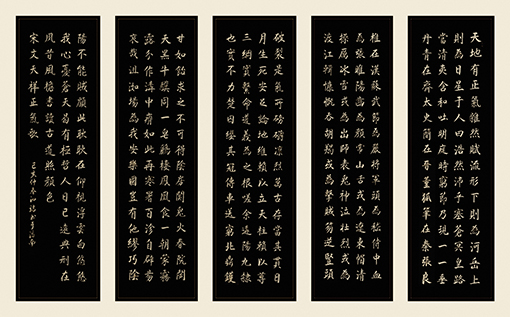 天地有正氣雜然賦流形下則為河岳上
則為日星于人曰浩然沛乎塞蒼冥皇路
當清夷含和吐明庭時窮節乃現一一垂
丹青在齊太史簡在晉董狐筆在秦張良
椎在漢蘇武節為嚴將軍頭為嵇侍中血
為張睢陽齒為顏常山舌或為遼東帽清
操厲冰雪或為出師表鬼神泣壯烈或為
渡江楫慷慨吞胡羯或為擊賊笏逆豎頭
破裂是氣所磅礴凜烈萬古存當其貫日
月生死安足論地維賴以立天柱賴以尊
三綱實繫命道義為之根嗟余遘陽九隸
也實不力楚囚纓其冠傳車送窮北鼎鑊
甘如飴求之不可得陰房闃鬼火春院閟
天黑牛驥同一皂雞棲鳳凰食一朝蒙霧
露分作溝中瘠如此再寒暑百沴自辟易
哀哉沮洳場為我安樂國豈有他繆巧陰
陽不能賊顧此耿耿在仰視浮雲白悠悠
我心憂蒼天曷有極哲人日已遠典刑在
夙昔風檐展書讀古道照顏色
宋文天祥正氣歌
己亥仲春